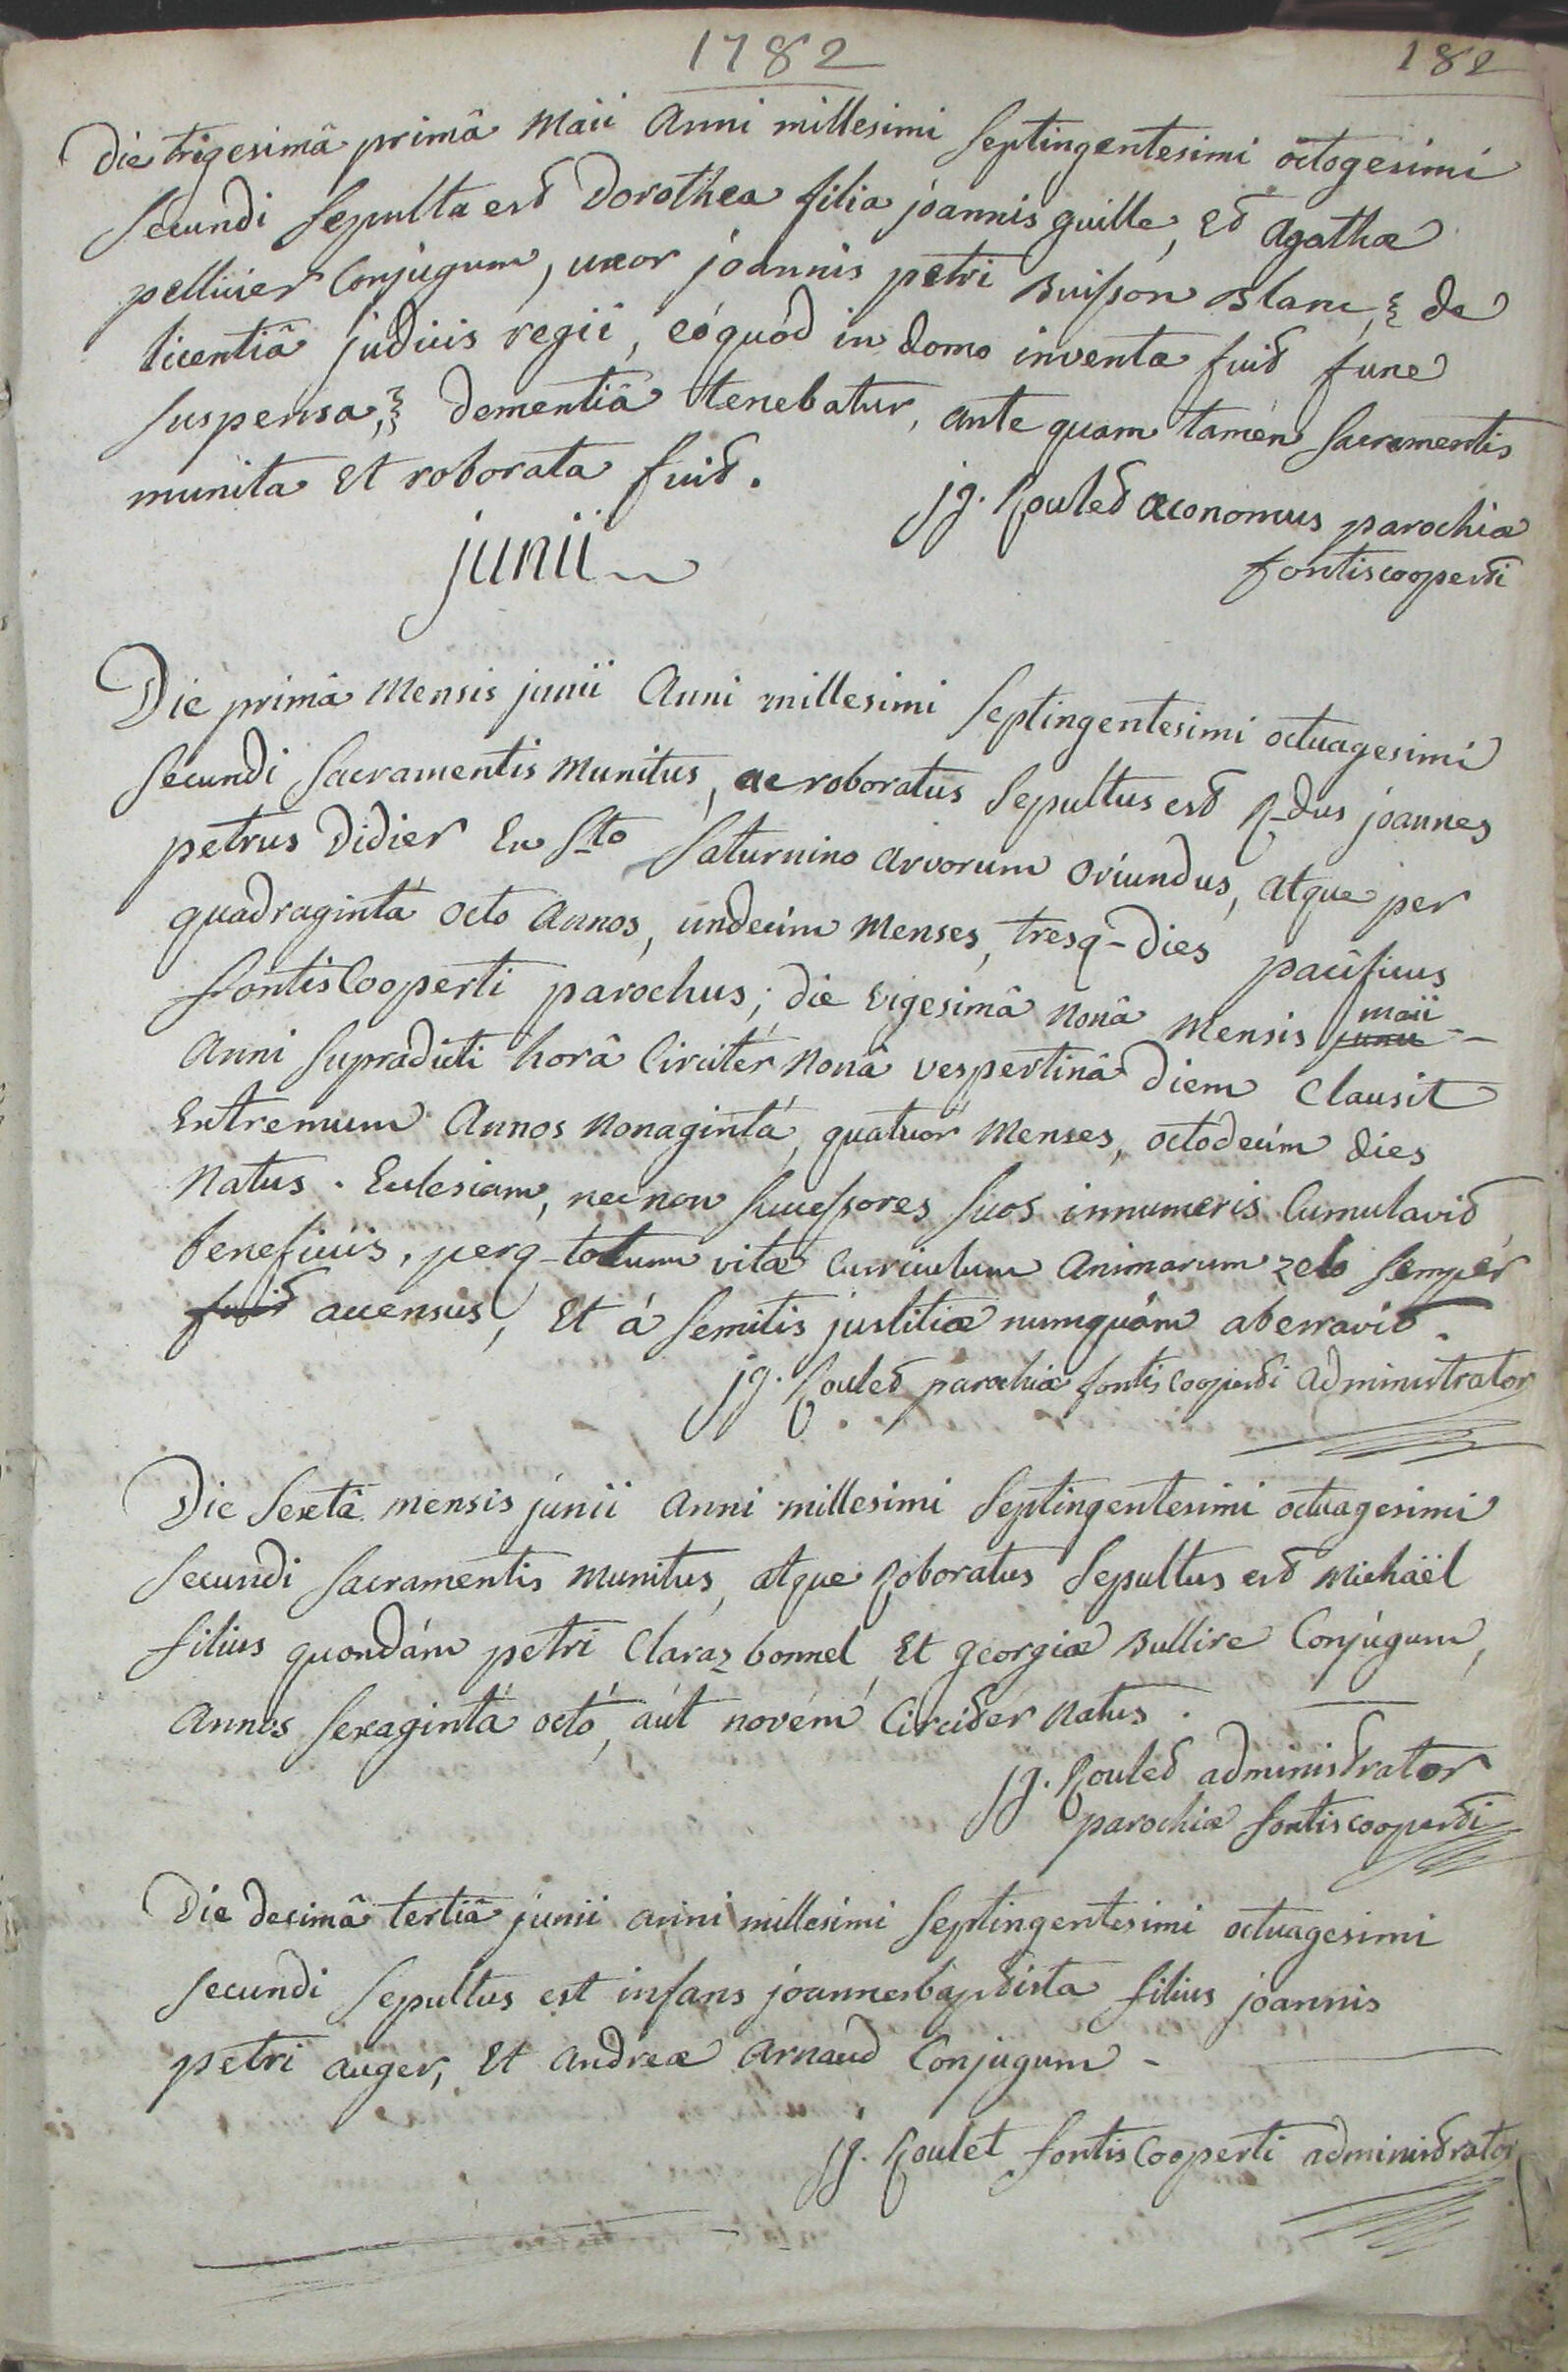 1782
182
Die trigesimâ primâ Maii Anni millesimi septingentesimi octogesimi
secundi sepulta est Dorothea filia joannis guille, et Agathæ
pellicier Conjugum, uxor joannis petri Buisson Blanc, & de
licentiâ judicis regii, eó quód in domo inventa fuit fune
suspensa, & dementiâ tenebatur, ante quam tamen sacramentis
munita et roborata fuit.
jg. Roulet œconomus parochiæ
fontiscooperti
junii
Die primâ Mensis junii Anni millesimi septingentesimi octuagesimi
secundi sacramentis Munitus, ac roboratus sepultus est R-dus joannes
petrus Didier Ex Sto Saturnino arvorum oriundus, atque per
quadragintá octo Annos, undecím Menses, tresq-dies pacificus
fontisCooperti parochus; die vigesimâ nonâ Mensis junii maii
Anni supradicti horâ Circitér Nonâ vespertinâ diem Clausit
Extremum Annos Nonagintá, quatuór Menses, octodecím dies
Natus. Ecclesiam, necnon successores suos innumeris Cumulavit
beneficiis, perq-totum vitæ Curriculum Animarum zelo sempér
fuit accensus, Et á semitis justitiæ numquám aberravit.
jg. Roulet parochiæ fontiscooperti Administrator
Die Sextâ mensis junii anni millesimi septingentesimi octuagesimi
secundi sacramentis Munitus, atque Roboratus sepultus est Michäel
filius quondám petri Claraz bonnel Et georgiæ Bullire Conjugum,
Annos sexagintá octó, aút novém Circiter Natus.
jg. Roulet administrator
parochiæ fontiscooperti
Die decimâ tertiâ junii anni millesimi septingentesimi octuagesimi
secundi sepultus est infans joannesbaptista filius joannis
petri auger, Et andreæ Arnaud Conjugum -
jg. Roulet fontisCooperti administrator